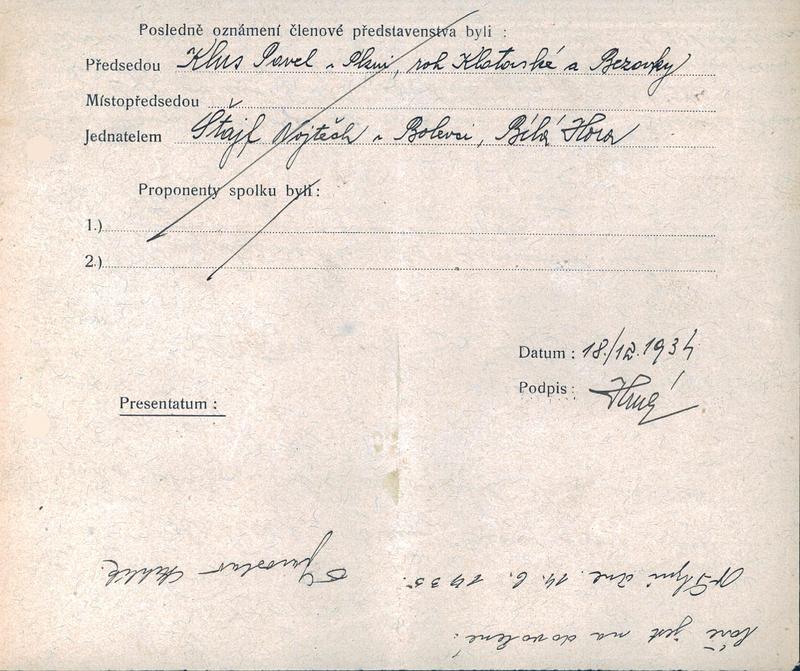 Posledně oznámení členové představenstva byli :
Předsedou Klus Pavel v Plzni, roh Klatovské a Bezovky
Místopředsedou
Jednatelem Štajf Vojtěch v Bolevci, Bílá Hora
Proponenty spolku byli :
1.)
2.)
Datum : 18./12. 1934
Podpis :
Presentatum :
jest na dovolené!
V Plzni dne 14. 6. 1935.
Jaroslav